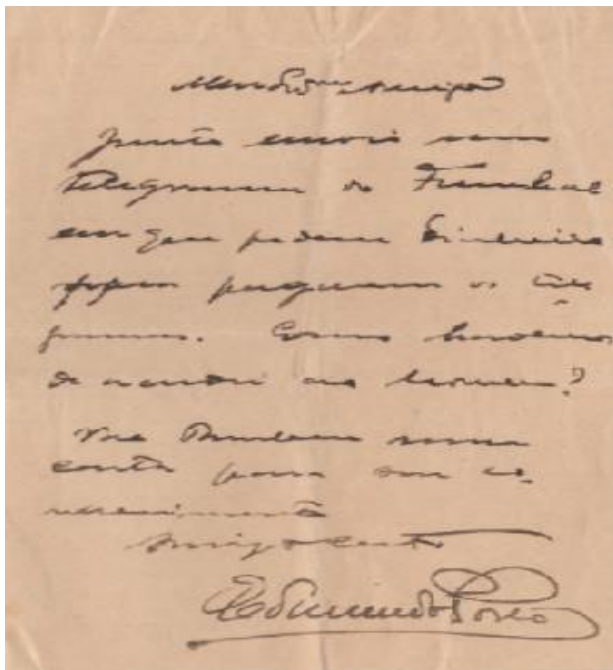 Meu Exmo Amigo
Junto envio um
telegramma do Funchal
em que pedem dinheiro
para pagarem os
Como havemos
de acudir ao homem?
Vae tambem uma
conta para seu co-
nhecimento
Amigo certo
Edmundo Porto